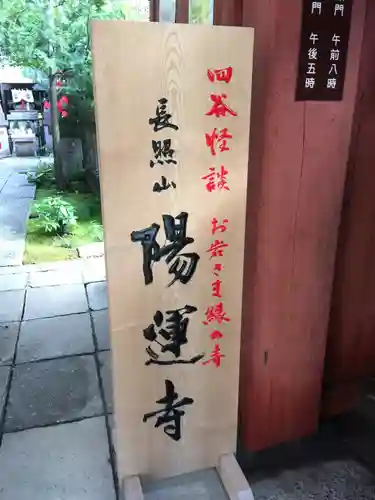 門 午前八時
門 午後五時
四谷怪談 お岩さま縁の寺
長照山
陽運寺